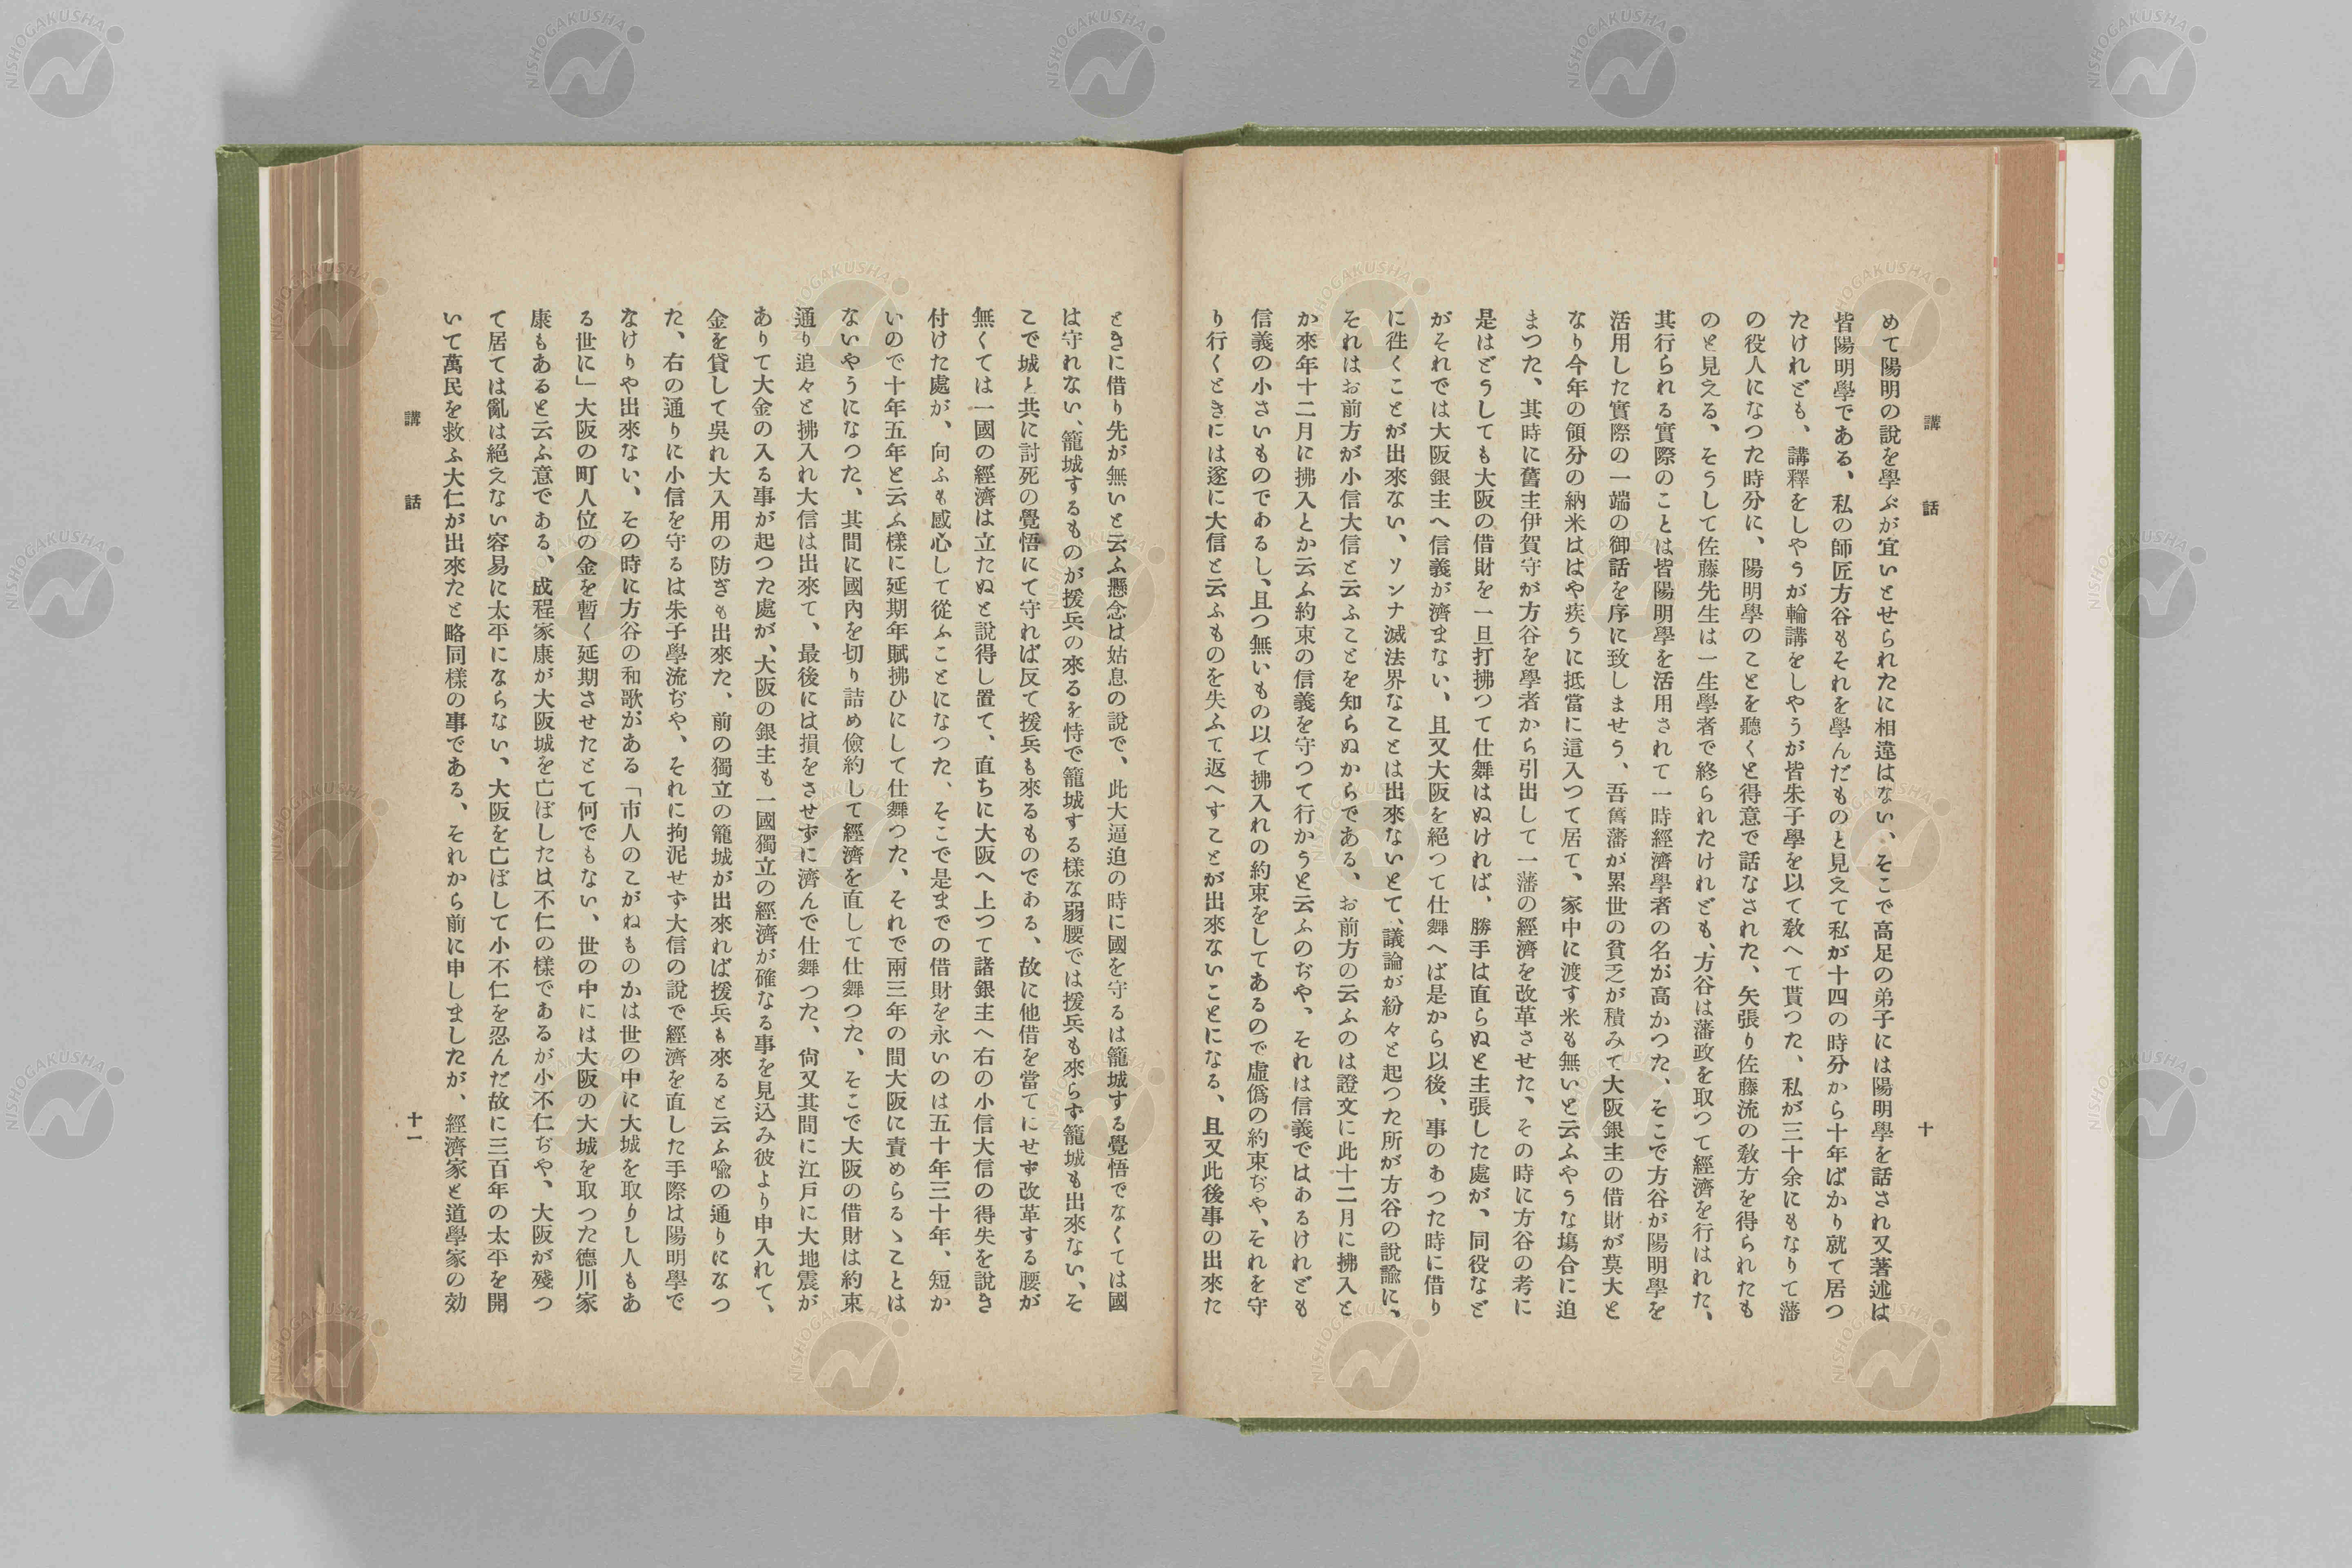 講話
十
めて陽明の說を學ぶが宜いとせられたに相違はない、そこで高足の弟子には陽明學を話され又著述は
皆陽明學である、私の師匠方谷もそれを學んだものと見えて私が十四の時分から十年ばかり就て居つ
たけれども、講釋をしやうが輪講をしやうが皆朱子學を以て敎へて貰つた、私が三十余にもなりて藩
の役人になつた時分に、陽明學のことを聽くと得意で話なされた、矢張り佐藤流の敎方を得られたも
のと見える、そうして佐藤先生は一生學者で終られたけれども、方谷は藩政を取つて經濟を行はれた、
其行られる實際のことは皆陽明學を活用されて一時經濟學者の名が高かつた、そこで方谷が陽明學を
活用した實際の一端の御話を序に致しませう、吾舊藩が累世の貧乏が積みて大阪銀主の借財が莫大と
なり今年の領分の納米ははや疾うに抵當に這入つて居て、家中に渡す米も無いと云ふやうな塲合に迫
まつた、其時に舊主伊賀守が方谷を學者から引出して一藩の經濟を改革させた、その時に方谷の考に
是はどうしても大阪の借財を一旦打拂つて仕舞はぬければ、勝手は直らぬと主張した處が、同役など
がそれでは大阪銀主へ信義が濟まない、且又大阪を絕つて仕舞へば是から以後、事のあつた時に借り
に徃くことが出來ない、ソンナ滅法界なことは出來ないとて、議論が紛々と起つた所が方谷の說諭に、
それはお前方が小信大信と云ふことを知らぬからである、お前方の云ふのは證文に此十二月に拂入と
か來年十二月に拂入とか云ふ約束の信義を守つて行かうと云ふのぢや、それは信義ではあるけれども
信義の小さいものであるし、且つ無いもの以て拂入れの約束をしてあるので虛僞の約束ぢや、それを守
り行くときには遂に大信と云ふものを失ふて返へすことが出來ないことになる、且又此後事の出來た
ときに借り先が無いと云ふ懸念は姑息の說で、此大逼迫の時に國を守るは籠城する覺悟でなくては國
は守れない、籠城するものが援兵の來るを恃で籠城する樣な弱腰では援兵も來らず籠城も出來ない、そ
こで城と共に討死の覺悟にて守れば反て援兵も來るものである、故に他借を當てにせず改革する腰が
無くては一國の經濟は立たぬと說得し置て、直ちに大阪へ上つて諸銀主へ右の小信大信の得失を說き
付けた處が、向ふも感心して從ふことになつた、そこで是までの借財を永いのは五十年三十年、短か
いので十年五年と云ふ樣に延期年賦拂ひにして仕舞つた、それで兩三年の間大阪に責めらるゝことは
ないやうになつた、其間に國內を切り詰め儉約して經濟を直して仕舞つた、そこで大阪の借財は約束
通り追々と拂入れ大信は出來て、最後には損をさせずに濟んで仕舞つた、尙又其間に江戶に大地震が
ありて大金の入る事が起つた處が、大阪の銀主も一國獨立の經濟が確なる事を見込み彼より申入れて、
金を貸して吳れ大入用の防ぎも出來た、前の獨立の籠城が出來れば援兵も來ると云ふ喩の通りになつ
た、右の通りに小信を守るは朱子學流ぢや、それに拘泥せず大信の說で經濟を直した手際は陽明學で
なけりや出來ない、その時に方谷の和歌がある「市人のこがねものかは世の中に大城を取りし人もあ
る世に」大阪の町人位の金を暫く延期させたとて何でもない、世の中には大阪の大城を取つた德川家
康もあると云ふ意である、成程家康が大阪城を亡ぼしたは不仁の樣であるが小不仁ぢや、大阪が殘つ
て居ては亂は絕えない容易に太平にならない、大阪を亡ぼして小不仁を忍んだ故に三百年の太平を開
いて萬民を救ふ大仁が出來たと略同樣の事である、それから前に申しましたが、經濟家と道學家の効
講話
十一